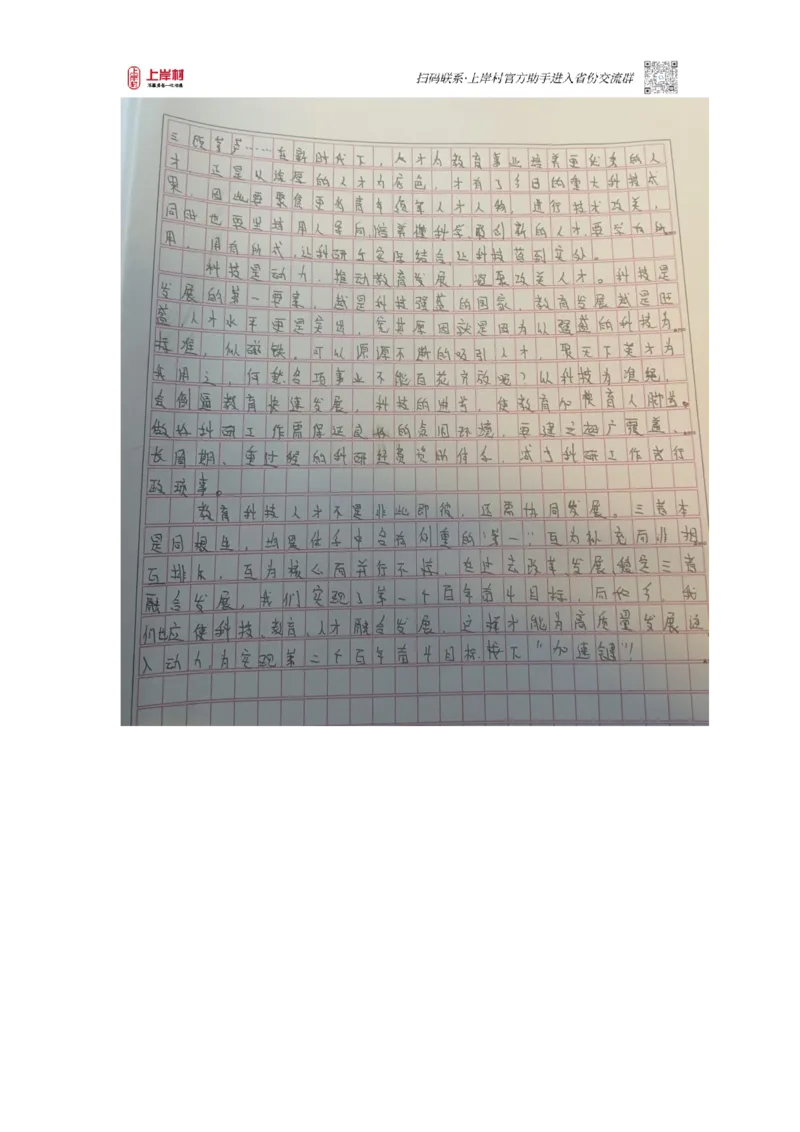 上岸村
扫码联系·上岸村官方助手进入省份交流群
三院等声……在新时代下，人才为教育事业培养更优秀的人
才，正是以浓厚的人才为底色，才有了今日的重大科技成
果，因此要聚焦更多青年领军人才人物，进行技术攻关，
同时也要坚持用人导向，培养懂科学、敢创新的人才，要学有所
用，用有所成，让科研与实际结合，让科技落到实处。
科技是动力，推动教育发展，凝聚攻关人才。科技是
发展的第一要素，越是科技强盛的国家，教育发展越是旺
盛，人才水平更是突出，究其原因就是因为以强盛的科技为
标准，似磁铁，可以源源不断的吸引人才，聚天下英才为
我用之，何愁各项事业不能百花齐放呢？以科技为准绳，
会倒逼教育快速发展，科技的进步，使教育加快育人脚步。
做好科研工作需保证良好的空间环境，要建立超广覆盖、
长周期、重过程的科研经费资助体系，减少科研工作者行
政琐事。
教育科技人才不是非此即彼，还需协同发展。三者本
是同根生，均是体系中各有侧重的“第一”，互为补充而非相
互排斥，互为核心而并行不悖，在过去改革、发展、稳定三者
融合发展，我们实现了第一个百年奋斗目标，而如今，我
们也应使科技、教育、人才融合发展，这样才能为高质量发展注
入动力，为实现第二个百年奋斗目标按下“加速键”！